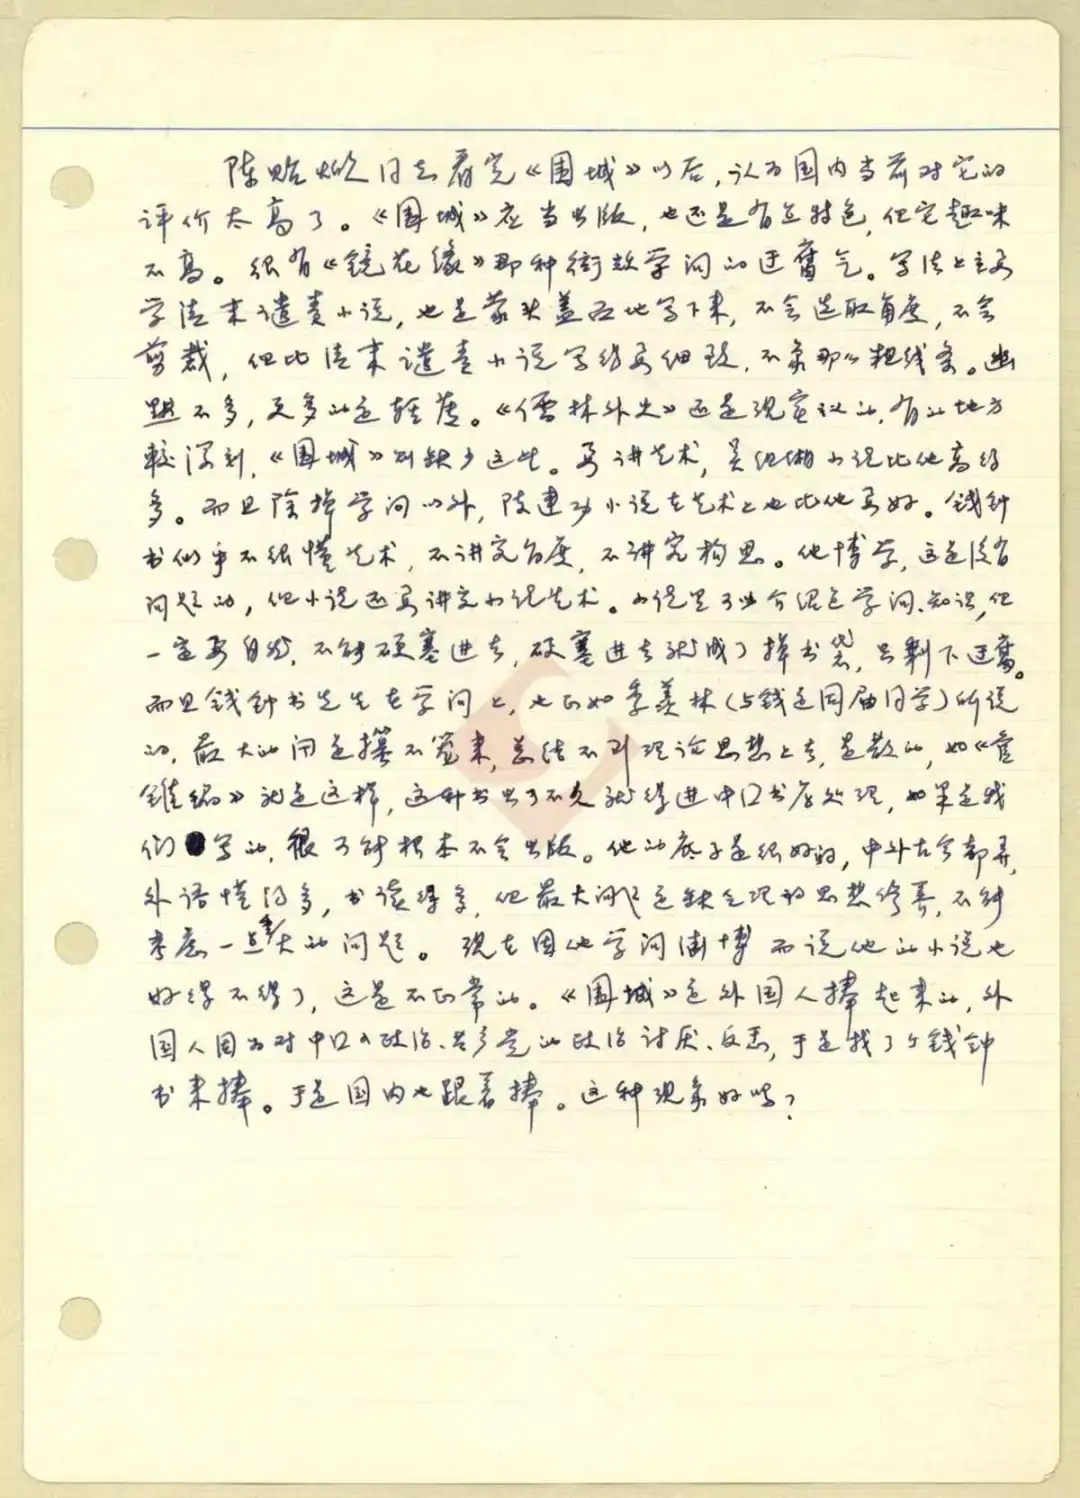 陈贻焮同志看完《围城》以后,认为国内当前对它的
评价太高了。《围城》应当出版,也还是有点特色,但它趣味
不高。很有《镜花缘》那种卖弄学问的迂腐气。写法上主要
学清末谴责小说,也是蒙头盖面地写下来,不会选取角度,不会
剪裁,但比清末谴责小说写得要细致,不象那么粗线条。幽
默不多,更多的是轻薄。《儒林外史》还是现实主义的,有的地方
较深刻,《围城》则缺少这些。要讲艺术,吴组缃小说比他高得
多。而且除掉学问以外,陈建功小说在艺术上也比他要好。钱钟
书似乎不很懂艺术,不讲究角度,不讲究构思。他博学,这是没有
问题的,但小说还要讲究小说艺术。小说里可以介绍点学问、知识,但
一定要自然,不能硬塞进去,硬塞进去就成了掉书袋,只剩下迂腐。
而且钱钟书先生在学问上,也正如季羡林(与钱是同届同学)所说
的,最大的问是撰不笼来,总结不到理论思想上去,是散的,如《管
锥编》就是这样,这种书出了不久就得进中国书店处理,如果是我
们写的,很可能根本不会出版。他的底子是很好的,中外古今都弄,
外语懂得多,书读得多,但最大问题是缺乏理论思想修养,不能
考虑一点多大的问题。现在因他学问渊博而说他的小说也
好得不得了,这是不正常的。《围城》是外国人捧起来的,外
国人因为对中国的政治、共产党的政治讨厌、反感,于是找了个钱钟
书来捧。于是国内也跟着捧。这种现象好吗?